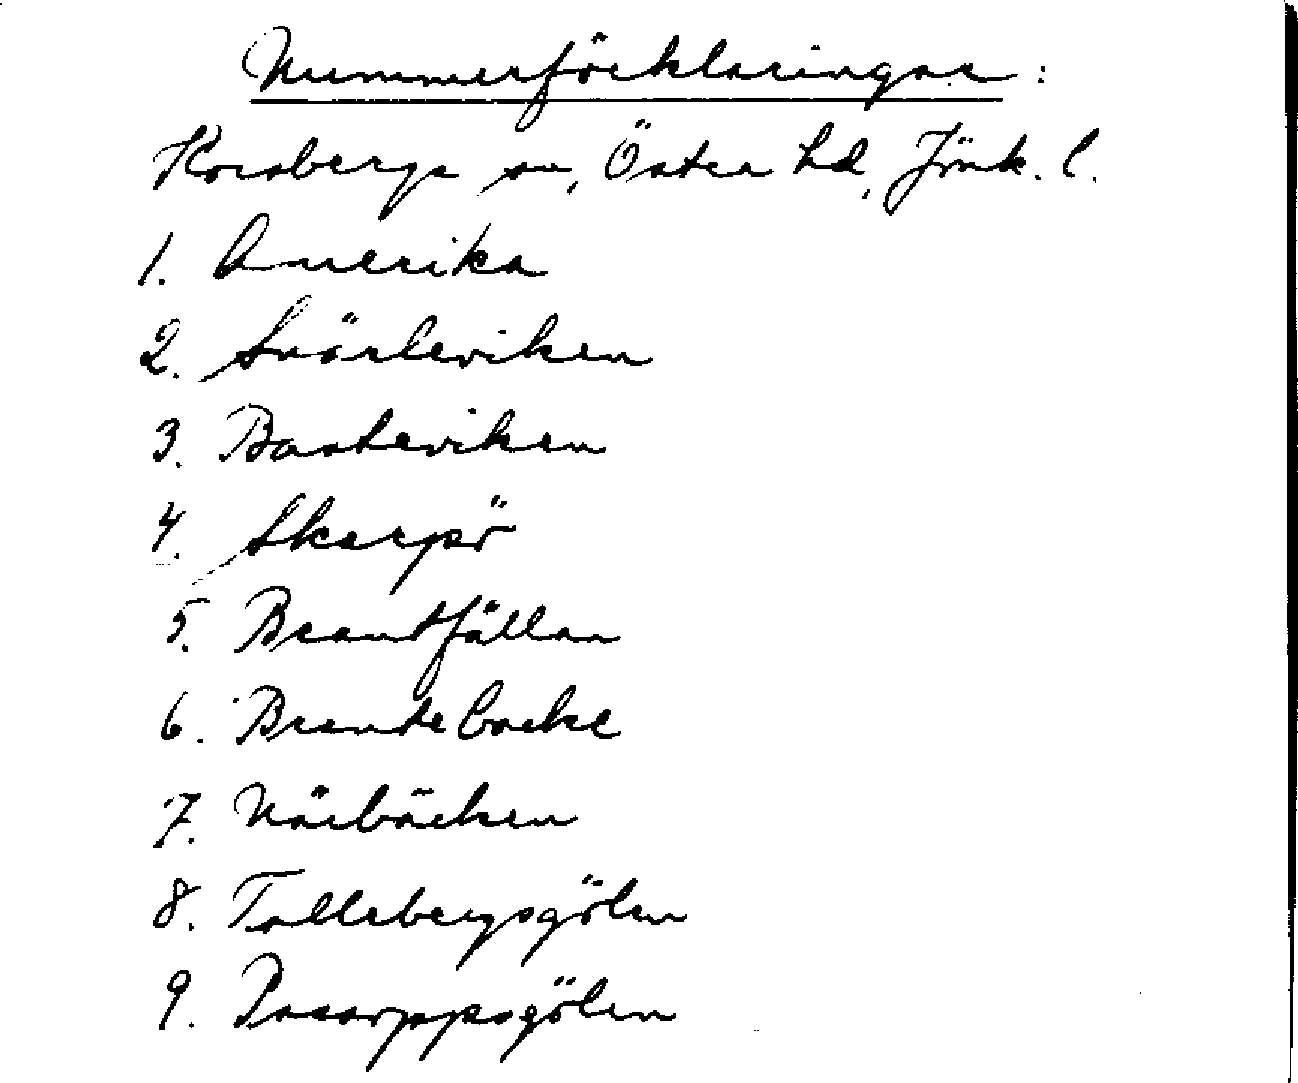 Nummerförklaringar:
Korsberga sn, Östra hd, Jönk. l.
1. Amerika
2. Snärleviken
3. Basteviken
4. Skarpö
5. Brantfällan
6. Brantebacke
7. Närbäcken
8. Tallebergsgölen
9. Pasarppsgölen